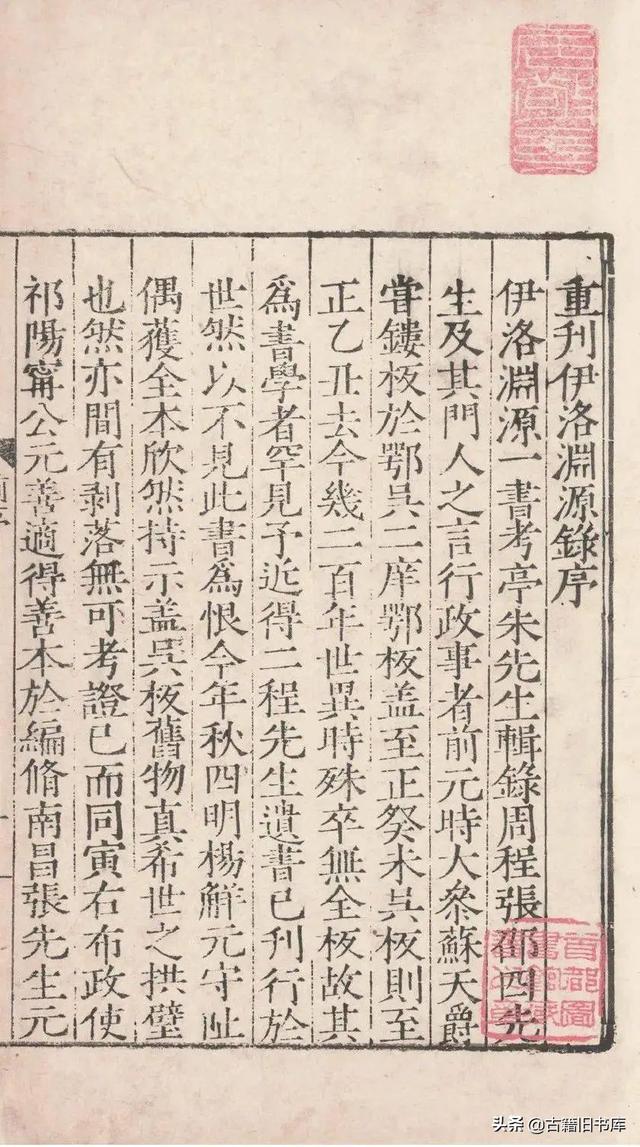 重刊伊洛淵源錄序
伊洛淵源一書考亭朱先生輯錄周程張邵四先
生及其門人之言行政事者前元時大叅蘇天爵
甞鏤板於鄂吳二庠鄂板盖至正癸未吳板則至
正乙丑去今幾二百年世異時殊卒無全板故其
為書學者罕見予近得二程先生遺書已刊行於
世然以不見此書為恨今年秋四明楊鮮元守阯
偶獲全本欣然持示盖吳板舊物真希世之拱璧
也然亦間有剥落無可考證已而同寅右布政使
祁陽甯公元善適得善本於編脩南昌張先生元
頭条 @古籍旧书库